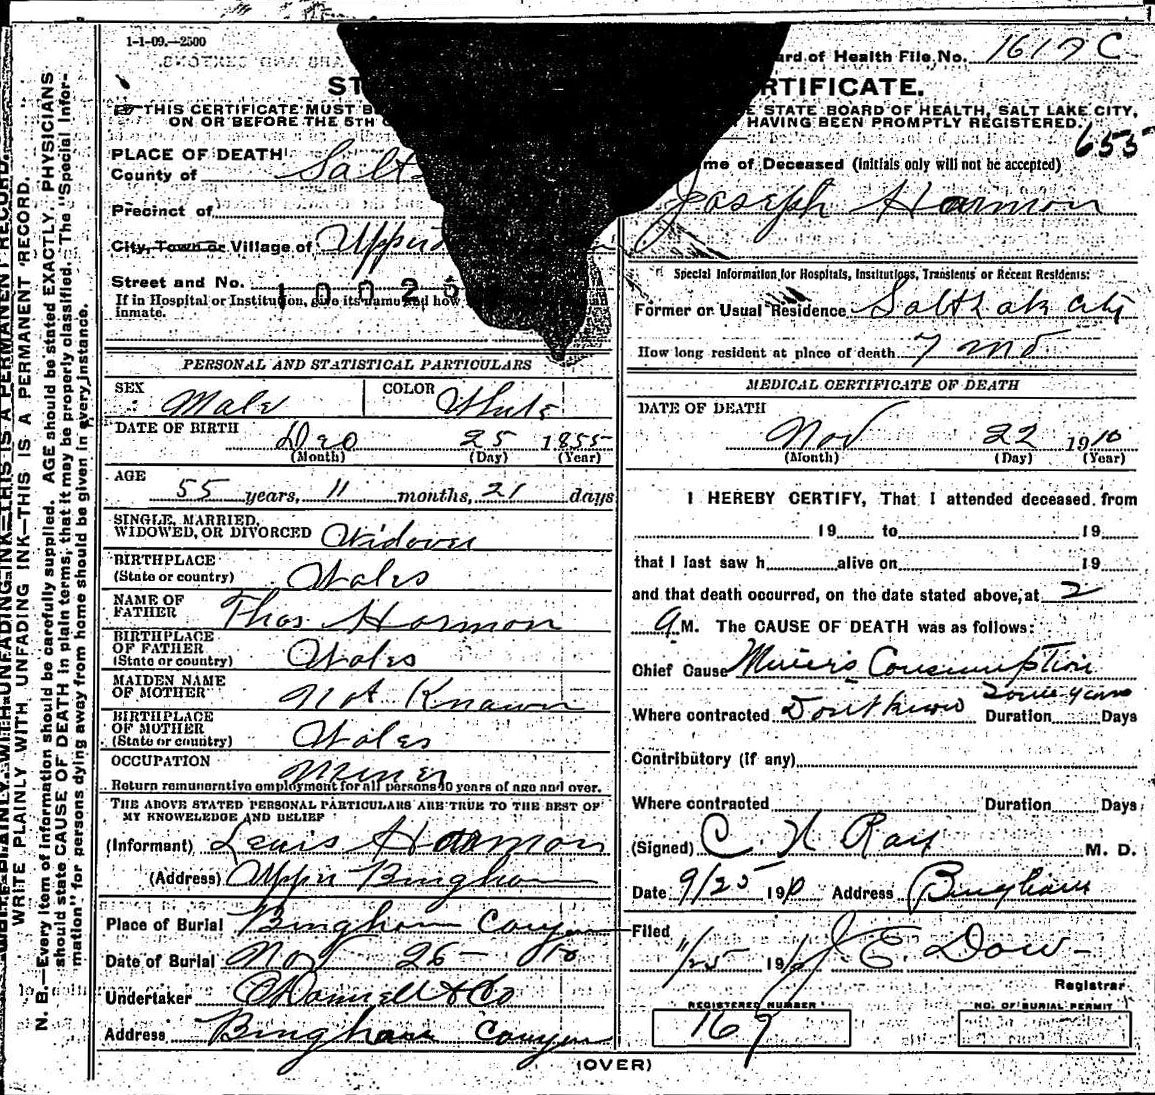 1-1-09.—2500
ard of Health File No. 1617 C
ST RTIFICATE.
THIS CERTIFICATE MUST B E STATE BOARD OF HEALTH, SALT LAKE CITY,
ON OR BEFORE THE 5TH HAVING BEEN PROMPTLY REGISTERED.
655
PLACE OF DEATH
County of Salt
Precinct of
City, Town or Village of Upper
Street and No.
10025
If in Hospital or Institution, give its name and how
inmate.
me of Deceased (initials only will not be accepted)
Joseph Harmon
Special Information for Hospitals, Institutions, Transients or Recent Residents:
Former or Usual Residence Salt Lake City
How long resident at place of death 7 mo
PERSONAL AND STATISTICAL PARTICULARS
SEX Male COLOR White
DATE OF BIRTH Dec 25 1855
(Month) (Day) (Year)
AGE
55 years, 11 months, 21 days
SINGLE, MARRIED,
WIDOWED, OR DIVORCED Widower
BIRTHPLACE
(State or country) Wales
NAME OF
FATHER Thos Harmon
BIRTHPLACE
OF FATHER
(State or country) Wales
MAIDEN NAME
OF MOTHER Not Known
BIRTHPLACE
OF MOTHER
(State or country) Wales
OCCUPATION Miner
Return remunerative employment for all persons 10 years of age and over.
THE ABOVE STATED PERSONAL PARTICULARS ARE TRUE TO THE BEST OF
MY KNOWLEDGE AND BELIEF
(Informant) Lewis Harmon
(Address) Upper Bingham
Place of Burial Bingham Canyon
Date of Burial Nov 26 — 10
Undertaker O'Donnell & Co
Address Bingham Canyon
MEDICAL CERTIFICATE OF DEATH
DATE OF DEATH
Nov 22 1910
(Month) (Day) (Year)
I HEREBY CERTIFY, That I attended deceased from
19 to 19
that I last saw h alive on 19
and that death occurred, on the date stated above, at 2
a M. The CAUSE OF DEATH was as follows:
Chief Cause Miner's Consumption
Where contracted Dont know Duration some years Days
Contributory (if any)
Where contracted Duration Days
(Signed) C. N. Ray M. D.
Date 9/25 1910 Address Bingham
Filed
11/25 1910 J. E. Dow
Registrar
REGISTERED NUMBER
167
NO. OF BURIAL PERMIT
(OVER)
N. B.—Every item of information should be carefully supplied. AGE should be stated EXACTLY. PHYSICIANS
should state CAUSE OF DEATH in plain terms, that it may be properly classified. The "Special Infor-
mation" for persons dying away from home should be given in every instance.
WRITE PLAINLY WITH UNFADING INK—THIS IS A PERMANENT RECORD.
WRITE PLAINLY WITH UNFADING INK—THIS IS A PERMANENT RECORD.